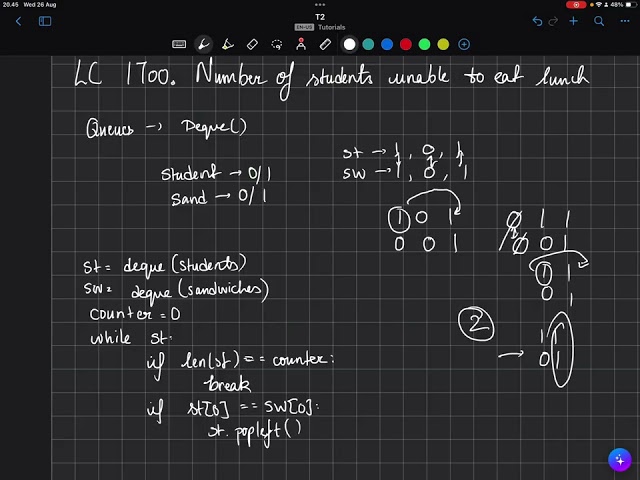 20.45 Wed 26 Aug
48%
T2
EN-US Tutorials
LC 1700. Number of students unable to eat lunch
Queues → Deque()
student → 0/1
sand → 0/1
st → 1, 0, 1
sw → 1, 0, 1
1 0 1
0 0 1
0 1 1
0 0 1
1 1
0 1
2
1 1
→ 0 1
st = deque(students)
sw = deque(sandwiches)
counter = 0
while st:
if len(st) == counter:
break
if st[0] == sw[0]:
st.popleft()